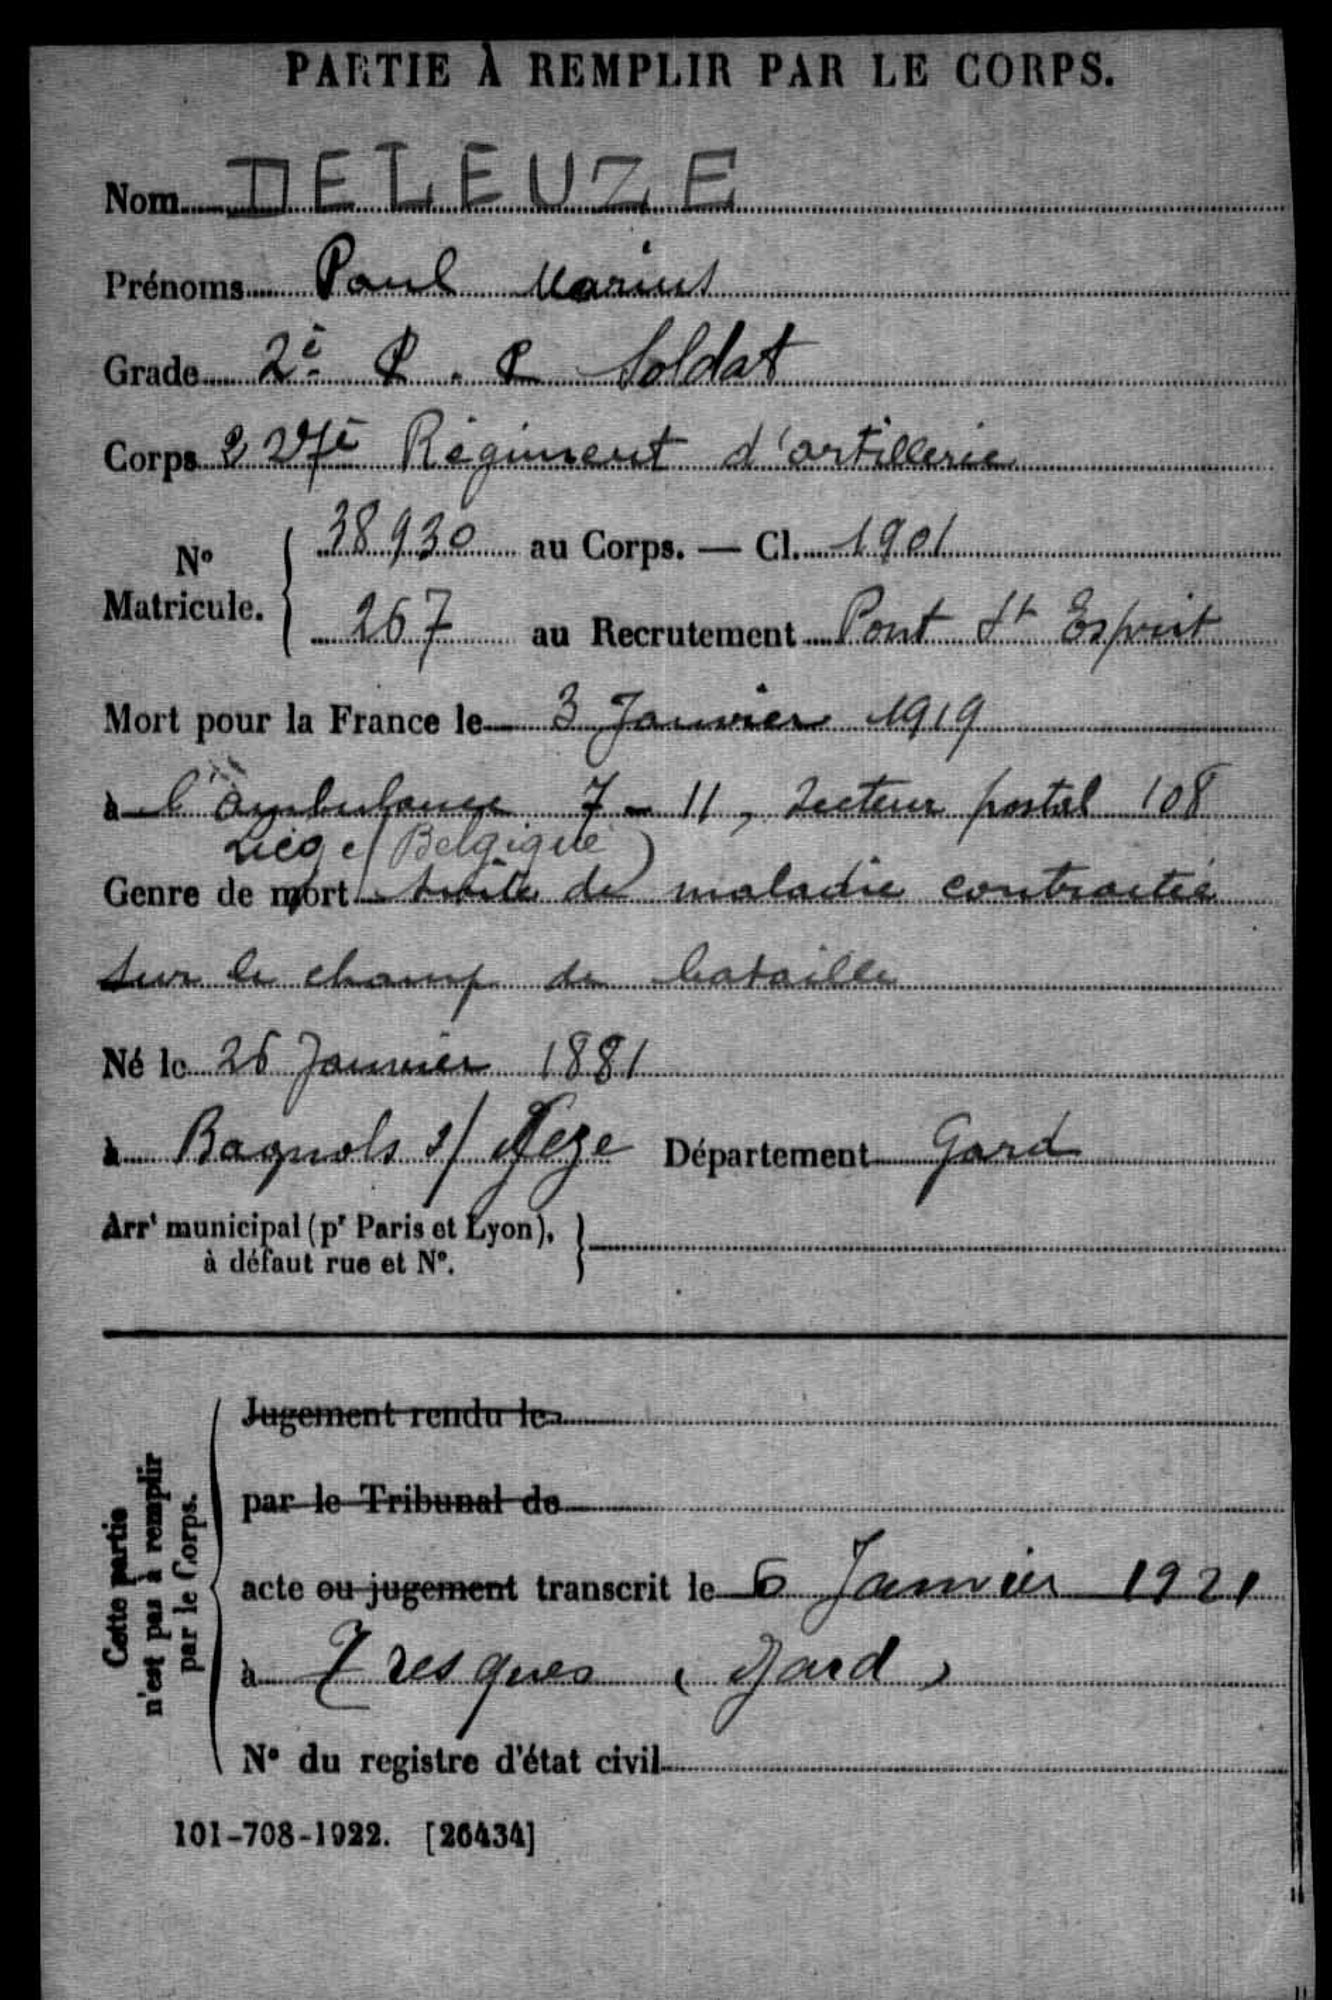 PARTIE À REMPLIR PAR LE CORPS.
Nom DELEUZE
Prénoms Paul Marius
Grade 2è Soldat
Corps 227è Régiment d'artillerie
N° Matricule. 38930 au Corps. — Cl. 1901
267 au Recrutement Pont St Esprit
Mort pour la France le 3 Janvier 1919
à l'ambulance 7 - 11, secteur postal 108
Liége (Belgique)
Genre de mort suite de maladie contractée
sur le champ de bataille
Né le 26 Janvier 1881
à Bagnols s/ Cèze Département Gard
Arrt municipal (pr Paris et Lyon),
à défaut rue et N°.
Cette partie
n'est pas à remplir
par le Corps.
Jugement rendu le
par le Tribunal de
acte ou jugement transcrit le 6 Janvier 1921
à Tresques (Gard)
N° du registre d'état civil
101-708-1922. [26434]